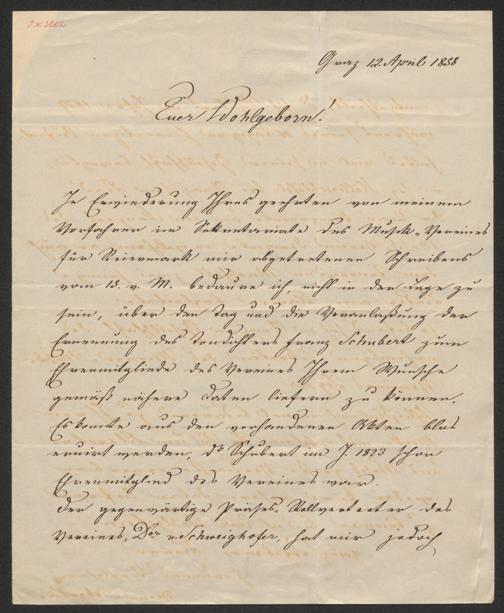 I.N. 36102
Graz 12. April 1858
Euer Wohlgeborn!
In Erwiederung Ihres geehrten von meinem
Vorfahren im Sekretariate des Musik-Vereines
für Steiermark mir abgetretenen Schreibens
vom 15. v. M. bedaure ich, nicht in der Lage zu
sein, über den Tag und die Veranlaßung der
Ernennung des Tondichters Franz Schubert zum
Ehrenmitgliede des Vereines Ihrem Wunsche
gemäß nähere Daten liefern zu können.
Es konnte aus den vorhandenen Akten blos
eruirt werden, dß Schubert im J. 1823 schon
Ehrenmitglied des Vereines war.
Der gegenwärtige Präses-Stellvertreter des
Vereines, Dor v. Schweighofer, hat mir jedoch